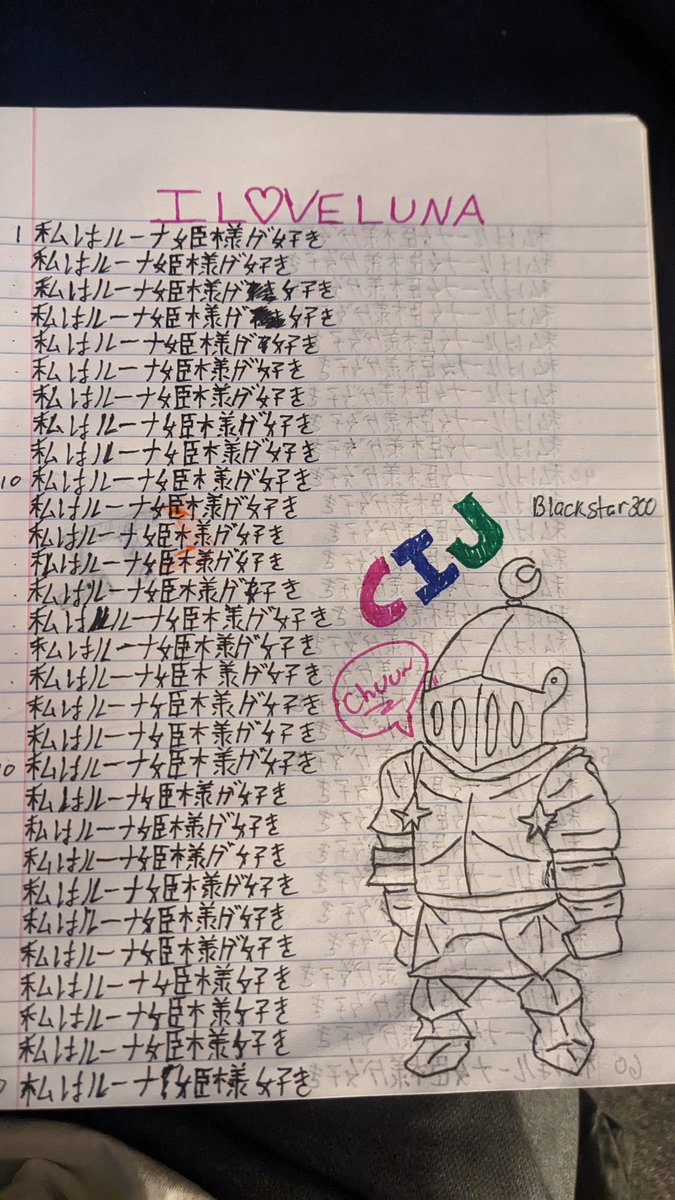 I L♡VE LUNA
1 私はルーナ姫様が好き
私はルーナ姫様が好き
私はルーナ姫様が好き
私はルーナ姫様が好き
私はルーナ姫様が好き
私はルーナ姫様が好き
私はルーナ姫様が好き
私はルーナ姫様が好き
私はルーナ姫様が好き
10 私はルーナ姫様が好き
私はルーナ姫様が好き
私はルーナ姫様が好き
私はルーナ姫様が好き
私はルーナ姫様が好き
私はルーナ姫様が好き
私はルーナ姫様が好き
私はルーナ姫様が好き
私はルーナ姫様が好き
私はルーナ姫様が好き
0 私はルーナ姫様が好き
私はルーナ姫様が好き
私はルーナ姫様が好き
私はルーナ姫様が好き
私はルーナ姫様が好き
私はルーナ姫様が好き
私はルーナ姫様が好き
私はルーナ姫様が好き
私はルーナ姫様が好き
私はルーナ姫様が好き
私はルーナ姫様好き
Blackstar200
CIJ
Chuun